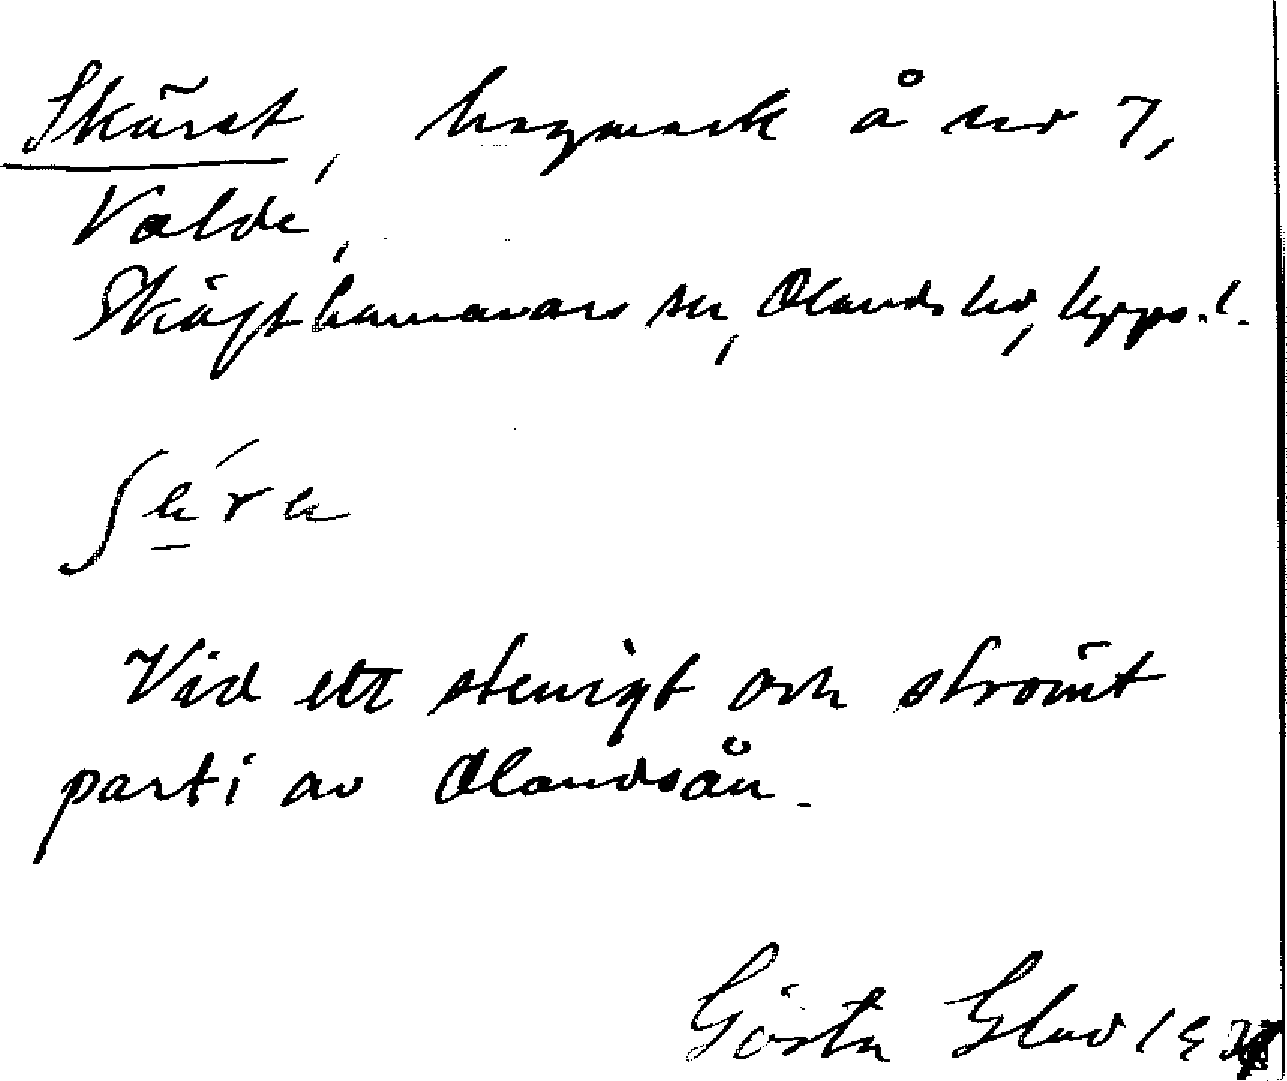 Skäret, hagmark å nr 7,
Valde,
Skäfthammars sn, Olands hd, Upps. l.
ʃärä
Vid ett stenigt och strömt
parti av Olandsån.
Gösta Glad